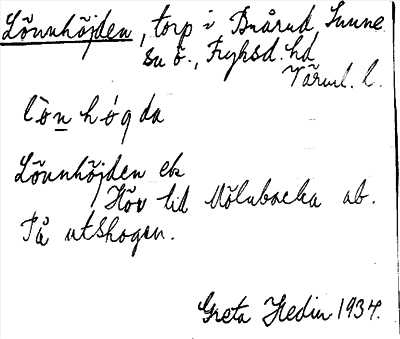 Lönnhöjden, torp i Bnårud, Sunne
su o., Fryksd. hd
Värml. l.
lò̀n hógda
Lönnhöjden ek
Hör till Mölnbacka ab.
På utskogen.
Greta Hedin 1934.